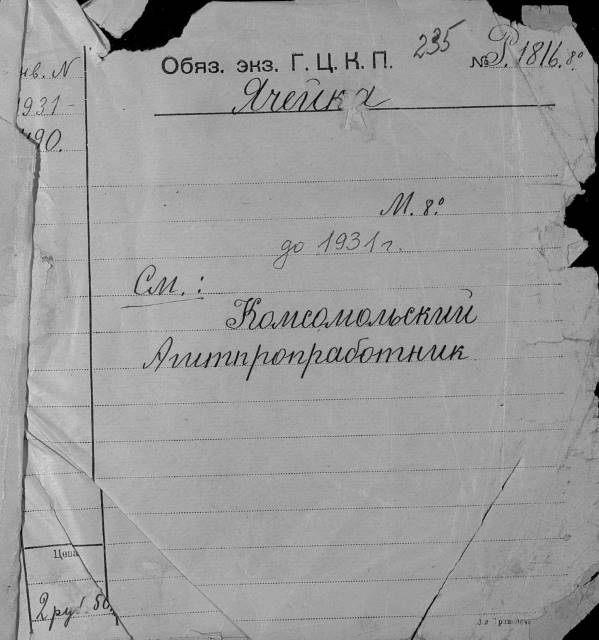 235
Обяз. экз. Г. Ц. К. П. № Р. 1816. 8.º
Ячейка
нв. N
1931-
490.
М. 8.º
до 1931 г.
См. :
Комсомольский
Агитпропработник
Цена
2 руб. 50